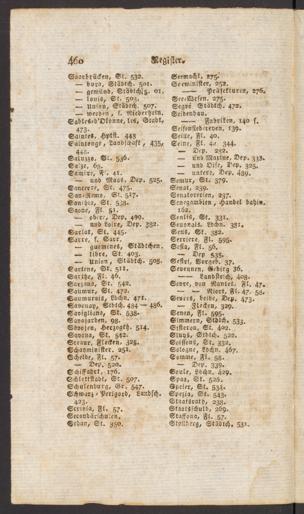 460 Register.
Saarbrücken, St. 532.
— burg, Städtch. 501.
— gemünd, Städtch. 501.
— louis, St. 503.
— Union, Städtch. 507.
— werden, s. Niederrhein.
Sables d'Olonne, les, Stadt,
473.
Saintes, Hptst. 448
Saintonge, Landschaft, 435,
448.
Saluzzo, St. 536.
Salze, 63.
Sambre, Fl. 41.
— und Maas, Dep. 525.
Sancerre, St. 475.
San-Remo, St. 547.
Santhia, St. 538.
Saone, Fl. 51.
— obere, Dep. 490.
— und Loire, Dep. 382.
Sarlat, St. 445.
Sarre, s. Saar.
— guemines, Städtchen.
— libre, St. 403.
— Union, Städtch. 508.
Sartene, St. 512.
Sarthe, Fl. 46.
Sarzana, St. 542.
Saumur, St. 472.
Saumurois, Ldsch. 471.
Savenay, Stdtch. 484 — 486.
Savigliano, St. 538.
Savojarden, 98.
Savoyen, Herzogth. 514.
Savona, St. 542.
Sceaux, Flecken, 325.
Schatzminister, 251.
Schelde, Fl. 57.
— Dep. 520.
Schiffahrt, 176.
Schlettstadt, St. 507.
Schulenburg, Gr. 547.
Schwarz-Perigord, Landsch.
423.
Scrivia, Fl. 57.
Secondärschulen,
Sedan, St. 350.
Seemacht, 275.
Seeminister, 252.
— Präfekturen, 276.
See-Wesen, 275.
Segré Städtch. 472.
Seidenbau.
— Fabriken, 140 f.
Seifensiedereien, 139.
Seille, Fl. 40.
Seine, Fl. 42 344.
— Dep. 252.
— und Marne, Dep. 333.
— und Oise, Dep. 325.
— untere, Dep. 489.
Semur, St. 379.
Senat, 239.
Senatorerien, 237.
Senegambien, Handel dahin,
162.
Senlis, St. 331.
Senonais, Ldsch. 381.
Sens, St. 382.
Serriere, Fl. 595.
Sesia, Fl. 56.
— Dep. 535.
Sestri, Vorgeb. 37.
Sevennen, Gebirg 36.
— Landstrich, 408.
Sevre, von Nantes, Fl. 47.
— Niort, Fl. 47. 58.
Sevres, beide, Dep. 473.
— Flecken, 329.
Sevri, Fl. 595.
Simmern, Städch. 533.
Sisteron, St. 402.
Sivas, Stdtch. 520.
Soissons, St. 332.
Sologne, Ldsch. 467.
Somme, Fl. 58.
— Dep. 339.
Soule, Ldsch. 429.
Spaa, St. 526.
Speier, St. 534.
Spezia, St. 543.
Staatsrath, 238.
Staatsschuld, 269.
Staffora, Fl. 57.
Stollberg, Städtch. 531.